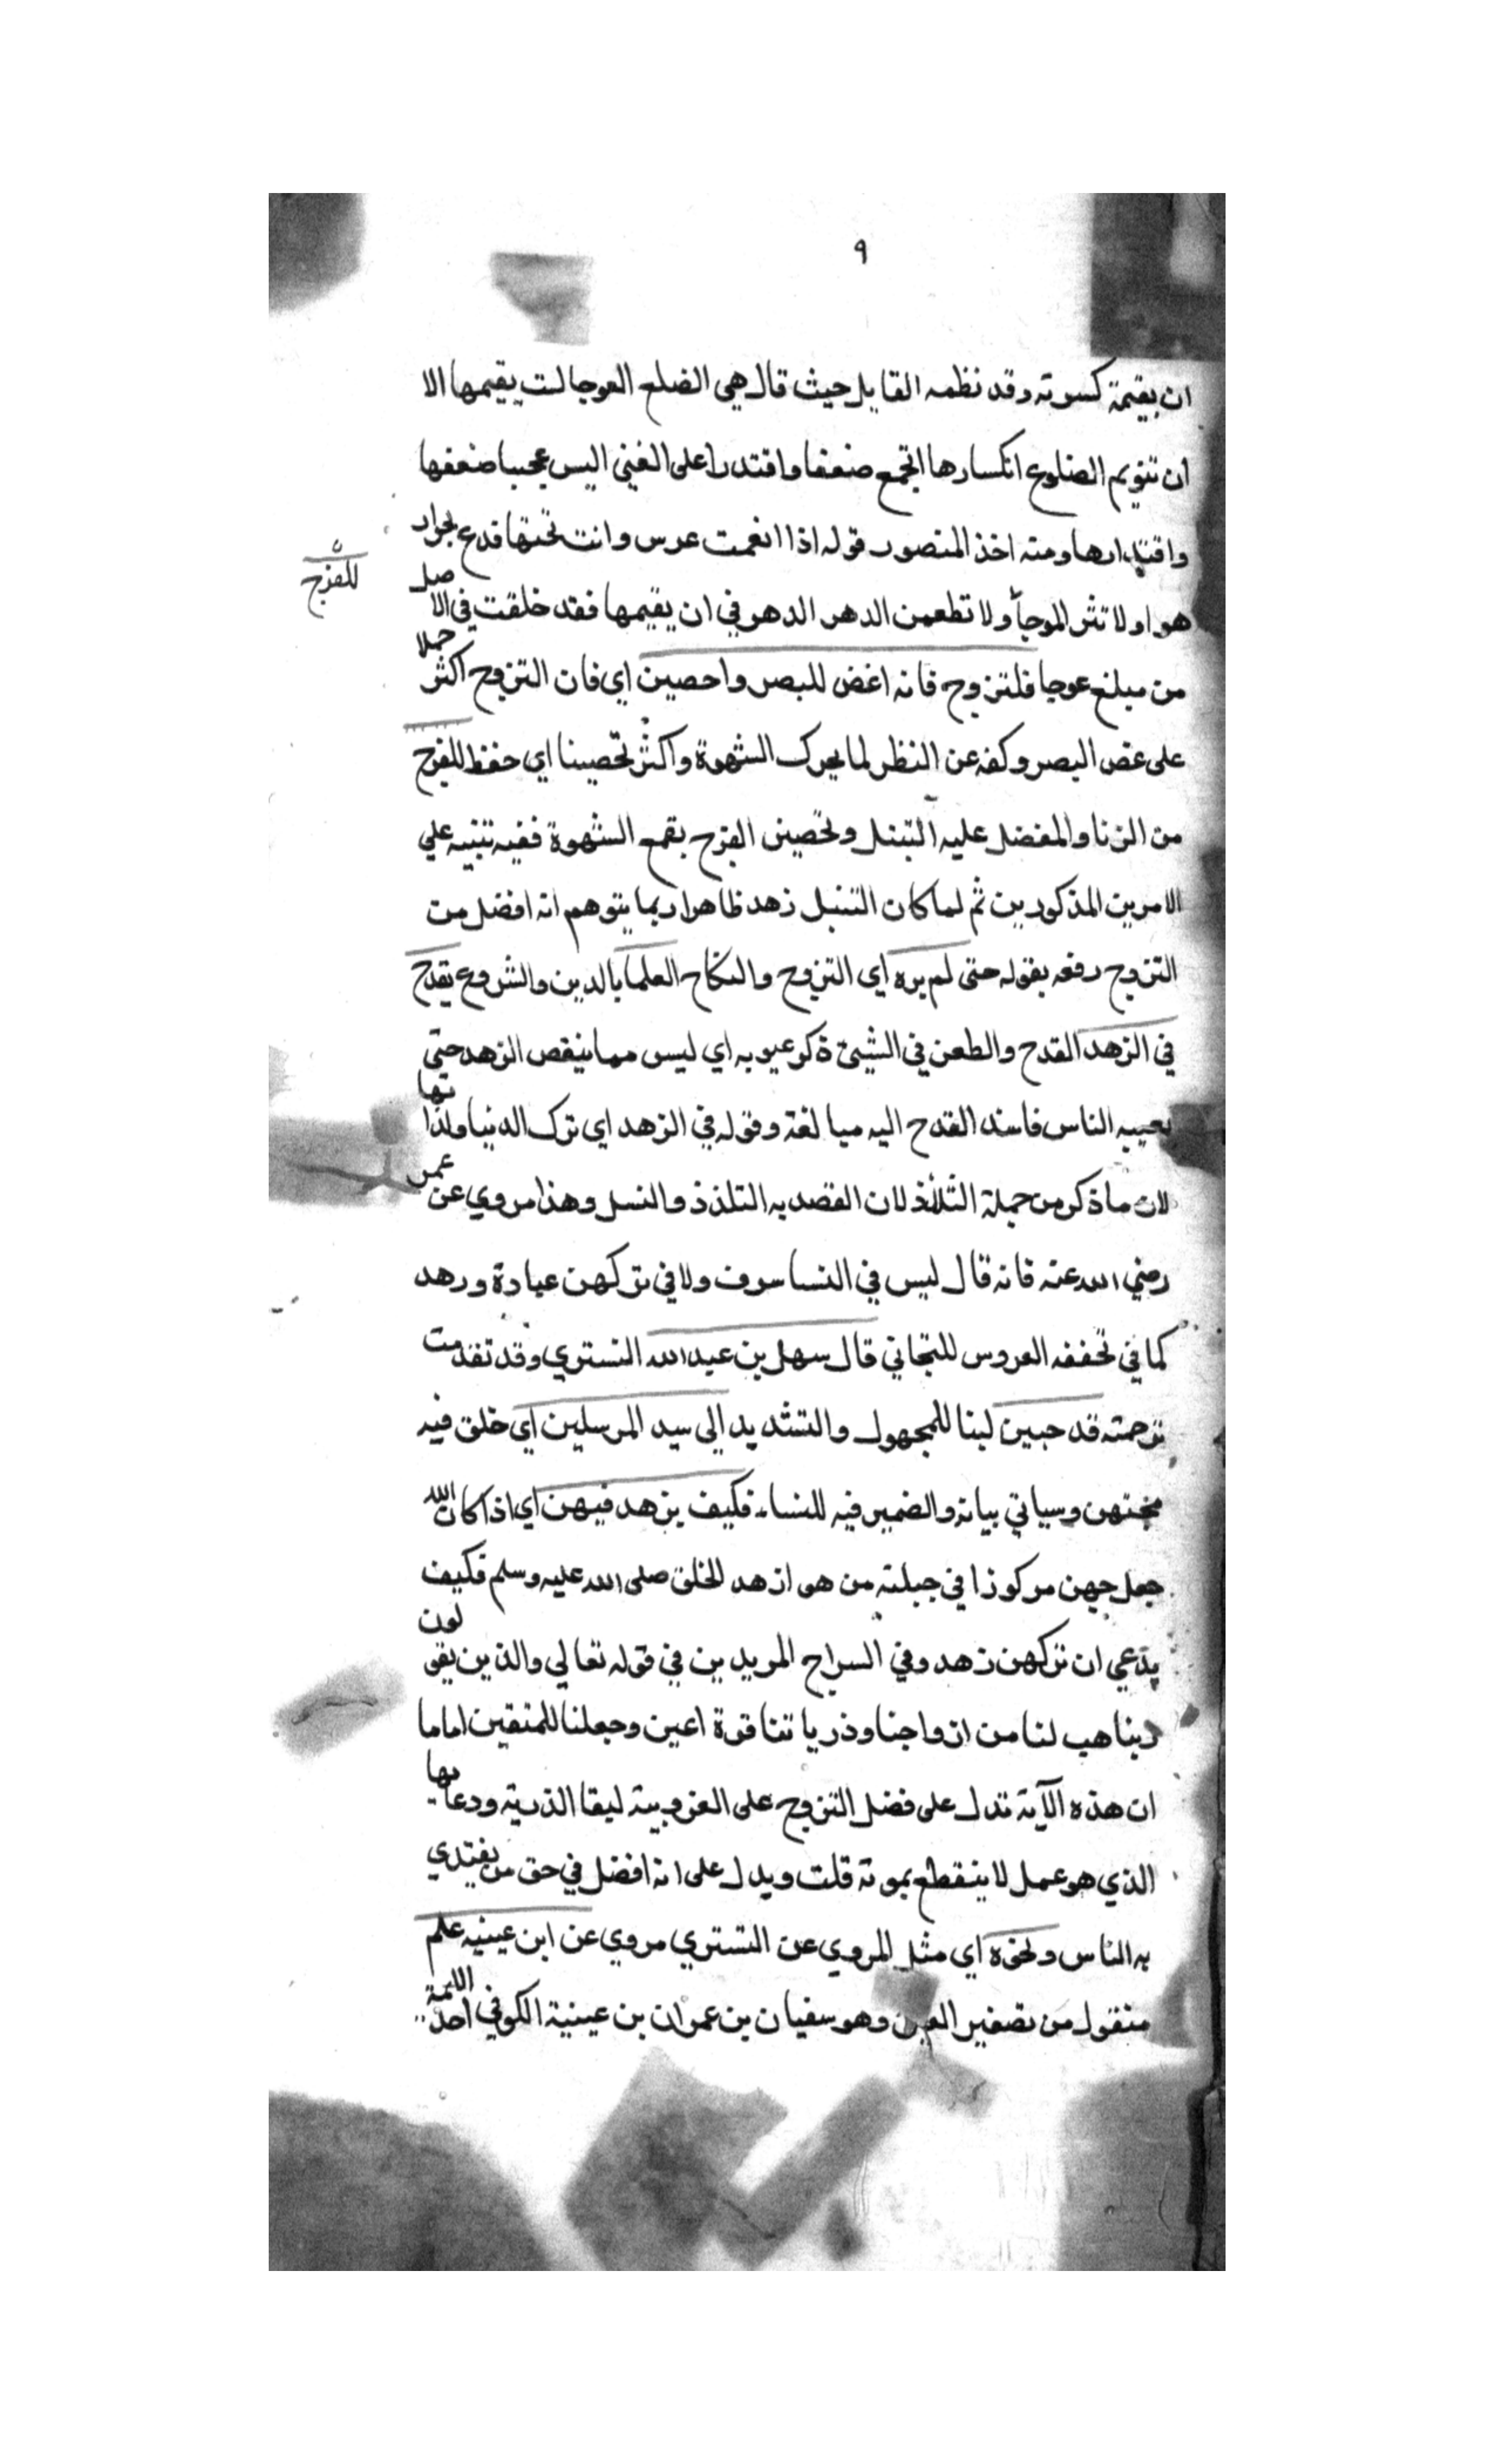 ٩
ان يقيمة كسرته وقد نظمه القايل حيث قال هي الضلع العوجا لست يقيمها الا
ان تقويم الضلوع انكسارها اتجمع ضعفا واقتدرا على الغني اليس عجيبا ضعفها
واقتدارها ومنه اخذ المنصور قوله اذا انغمت عرس وانت تحتها فدع بجوار
هوا ولا تثر الموجا ولا تطعمن الدهر الدهر في ان يقيمها فقد خلقت في الاصل
للفرج
من مبلغ عوجا فلتزوج فانه اغض للبصر واحصين اي فان التزوج اكثر حملا
على غض البصر وكفه عن النظر لما يحرك الشهوة واكثر تحصينا اي حفظ للفرج
من الزنا والمفضل عليه التبتل وتحصين الفرج بقمع الشهوة ففيه تنبيه علي
الامرين المذكورين ثم لما كان التبتل زهد ظاهرا ربما يتوهم انه افضل من
التزوج رفعه بقوله حتى لم يره اي التزوج والنكاح العلما بالدين والشروع يقدح
في الزهد القدح والطعن في الشيئ ذكر عيوبه اي ليس مما ينقص الزهد حتى
يعيبه الناس فاسند القدح اليه مبالغة وقوله في الزهد اي ترك الدنيا ولذاتها
لان ماذكر من جملة التلذذ لان القصد به التلذذ والنسل وهذا مروي عن عمر
رضي الله عنه فانه قال ليس في النسا سرف ولا في تركهن عبادة وزهد
كما في تحففه العروس للتجاني قال سهل بن عبد الله التستري وقد تقدمت
ترجمته قد حببن لبنا للمجهول والتشديد الي سيد المرسلين اي خلق فيه
محبتهن وسياتي بيانه والضمير فيه للنساء فكيف يزهد فيهن اي اذا كان الله
جعل حبهن مركوزا في جبلته من هو ازهد الخلق صلى الله عليه وسلم فكيف
يدعي ان تركهن زهد وفي السراج المريدين في قوله تعالي والذين يقولون
ربنا هب لنا من ازواجنا وذرياتنا قرة اعين وجعلنا للمتقين اماما
ان هذه الآية تدل على فضل التزوج على العزوبية ليقا الذرية ودعايها
الذي هو عمل لا ينقطع بموته قلت ويدل على انه افضل في حق من يقتدي
به الناس ونحوه اي مثل المروي عن التستري مروي عن ابن عيينه علم
منقول من تصغير العين وهو سفيان بن عمران بن عيينة الكوفي احد الايمة